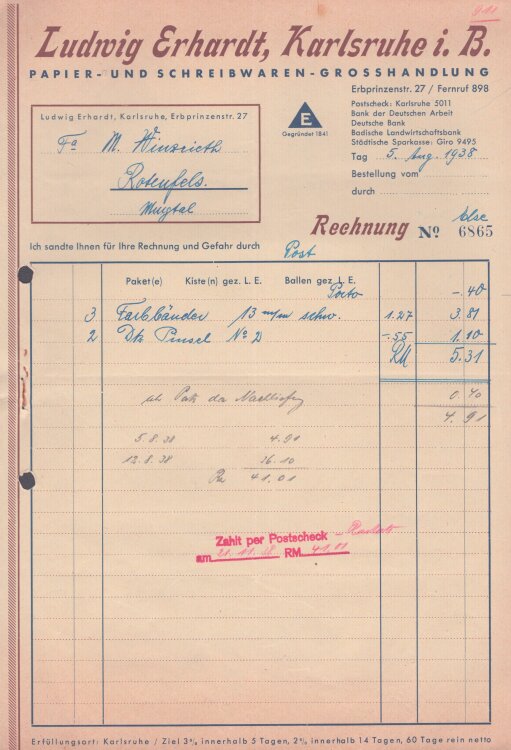 Ludwig Erhardt, Karlsruhe i. B.
PAPIER- UND SCHREIBWAREN-GROSSHANDLUNG
Erbprinzenstr. 27 / Fernruf 898
Ludwig Erhardt, Karlsruhe, Erbprinzenstr. 27
Fa M.
Rotenfels.
Murgtal
E
Gegründet 1841
Postscheck: Karlsruhe 5011
Bank der Deutschen Arbeit
Deutsche Bank
Badische Landwirtschaftsbank
Städtische Sparkasse: Giro 9495
Tag 5. Aug. 1938
Bestellung vom
durch
Rechnung No 6865
Ich sandte Ihnen für Ihre Rechnung und Gefahr durch Post
Paket(e) Kiste(n) gez. L. E. Ballen gez. L. E.
Porto -.40
3 Farbbänder 13 m/m schw. 1.27 3.81
2 Dtz Pinsel No 2 -.55 1.10
RM 5.31
0.40
4.91
5.8.38 4.91
12.8.38 36.10
41.01
Zahlt per Postscheck
am 21.11.38 RM. 41.01
Erfüllungsort: Karlsruhe / Ziel 3% innerhalb 5 Tagen, 2% innerhalb 14 Tagen, 60 Tage rein netto